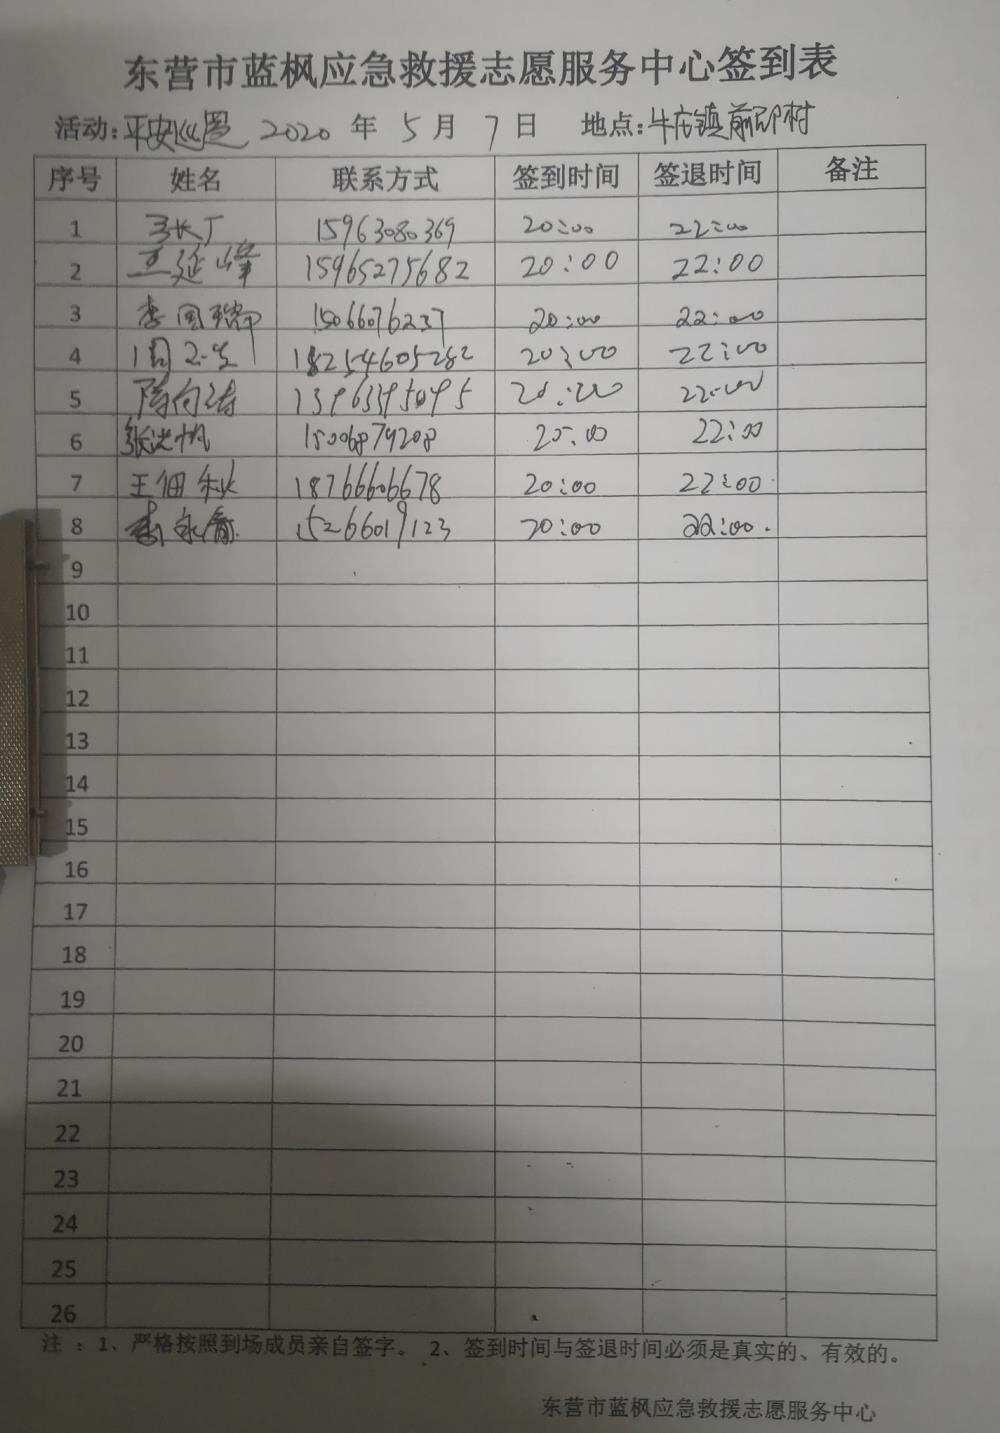 东营市蓝枫应急救援志愿服务中心签到表
活动:平安巡逻 2020 年 5 月 7 日 地点:牛庄镇前邵村
序号 姓名 联系方式 签到时间 签退时间 备注
1 张广 15963080369 20:00 22:00
2 王延峰 15965275682 20:00 22:00
3 李国瑞 15066076237 20:00 22:00
4 周 18254605282 20:00 22:00
5 陈向涛 13963395095 20:00 22:00
6 张洪帆 15006874208 20:00 22:00
7 王佃 18766606678 20:00 22:00
8 李永 15266019123 20:00 22:00
9
10
11
12
13
14
15
16
17
18
19
20
21
22
23
24
25
26
注：1、严格按照到场成员亲自签字。 2、签到时间与签退时间必须是真实的、有效的。
东营市蓝枫应急救援志愿服务中心